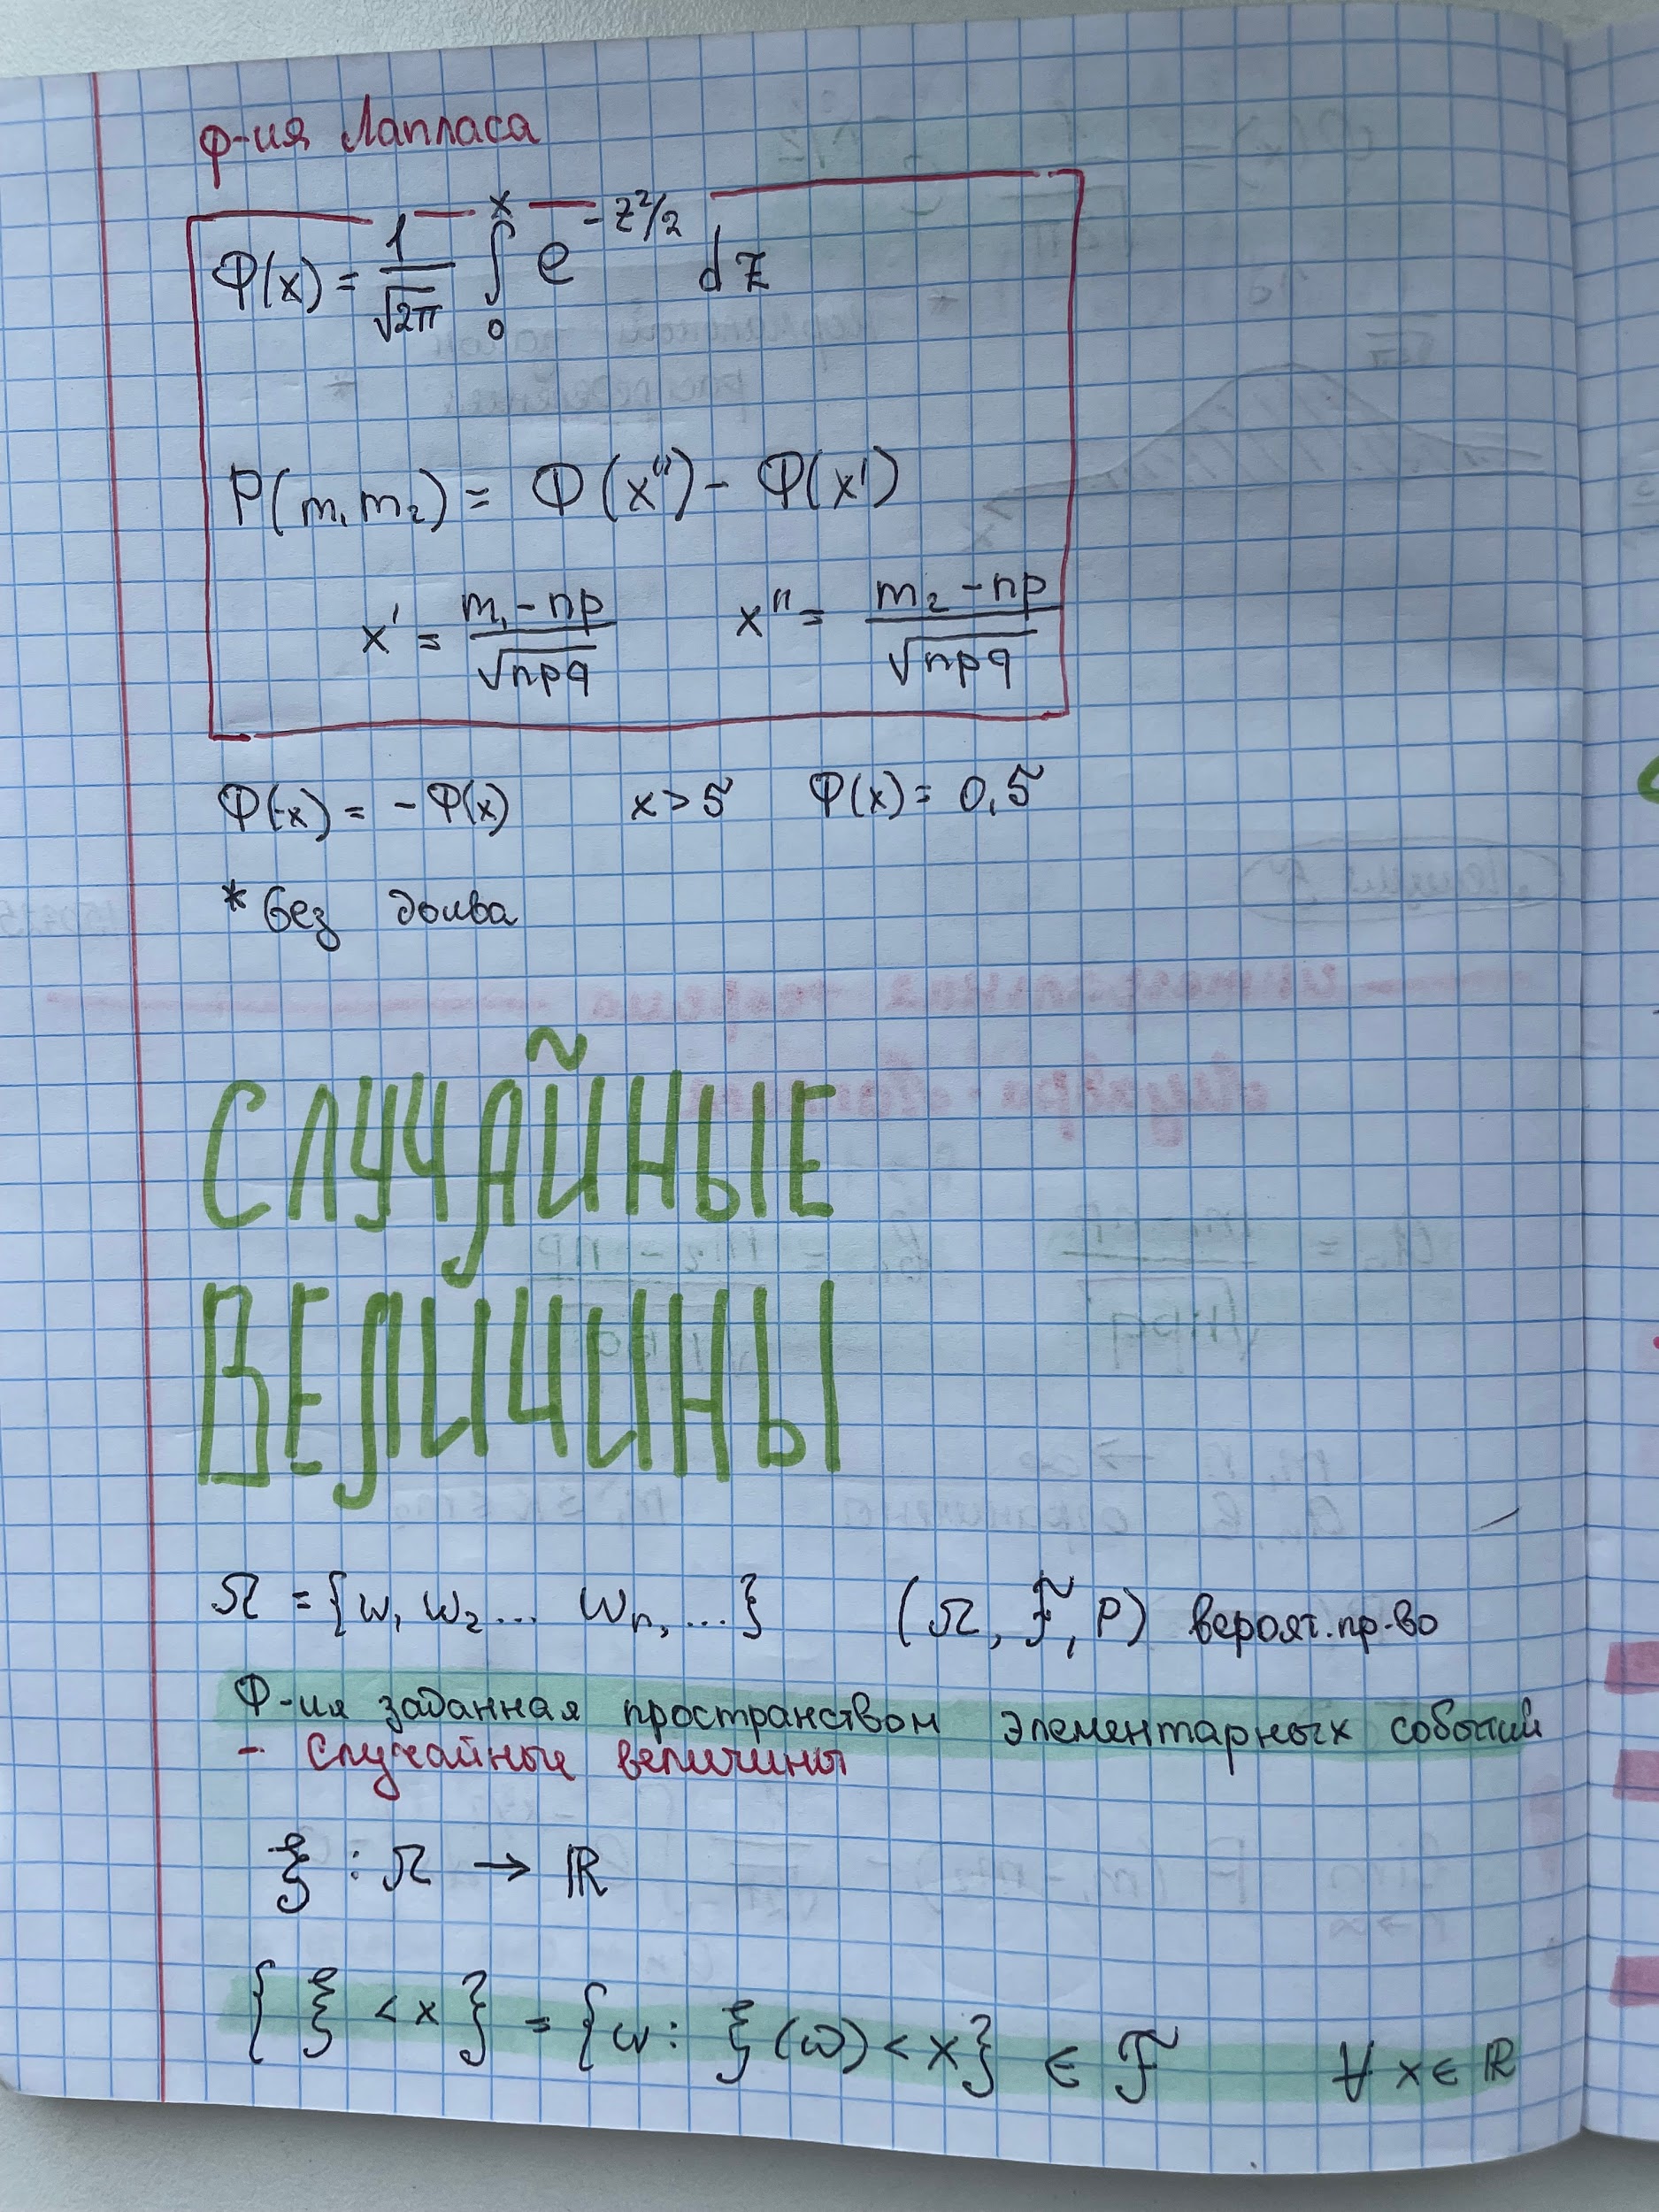 ф-ия Лапласа
Φ(x) = 1/√2π ∫₀ˣ e^(-z²/2) dz
P(m₁ m₂) = Φ(x'') - Φ(x')
x' = (m₁ - np)/√npq x'' = (m₂ - np)/√npq
Φ(-x) = - Φ(x) x > 5 Φ(x) = 0,5
* без
СЛУЧАЙНЫЕ
ВЕЛИЧИНЫ
Ω = {ω₁ ω₂ ... ωₙ, ...} (Ω, ℱ, P) вероят. пр-во
Ф-ия заданная пространством элементарных событий
- Случайные величины
ξ : Ω → ℝ
{ ξ < x } = {ω : ξ(ω) < x} ∈ ℱ ∀ x ∈ ℝ